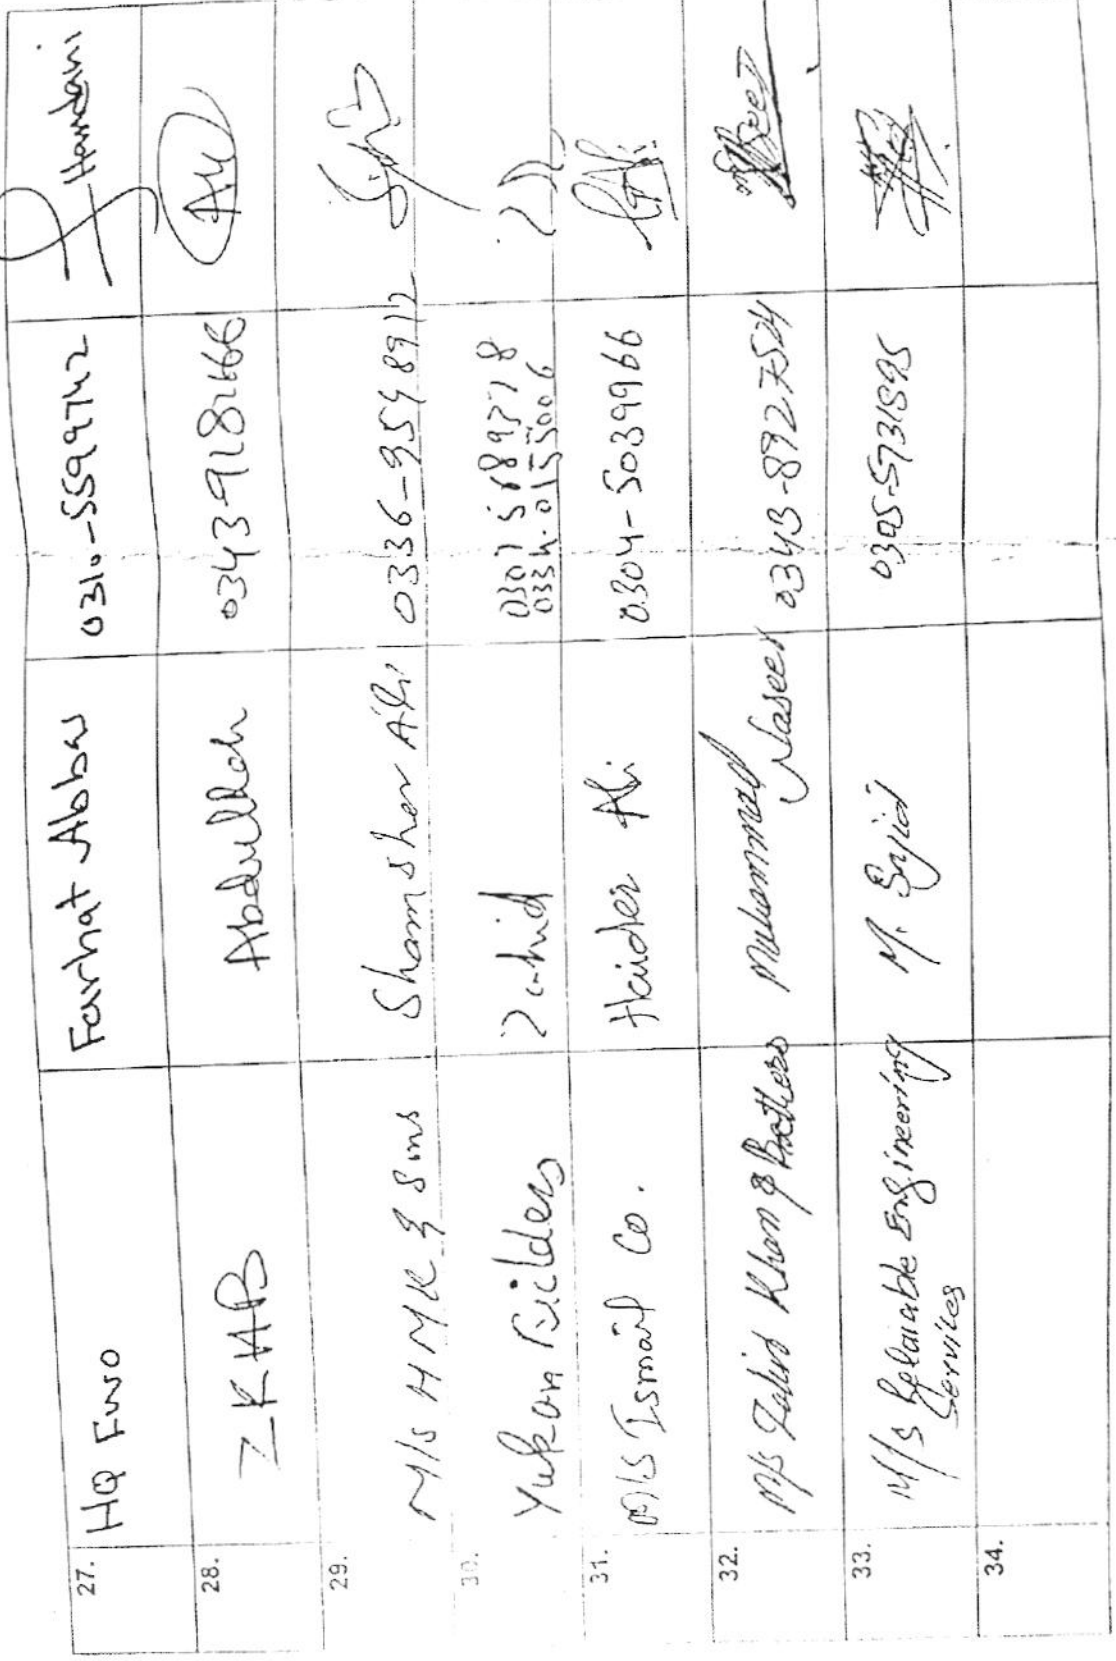 27. HQ FWO Farhat Abbas 0310-5559742 Hamdani
28. ZKHB Abdullah 03439182166
29. M/s HMK & Sons Shamsher Ali 0336-9598912
30. Yukon Builders Zahid 03075689378
0334-0155006
31. M/S Ismail Co. Haider Ali 0304-5039966
32. M/s Zahir Khan & Brothers Muhammad Naseer 0343-8927524
33. M/S Relaiable Engineering M. Sajid 0305-5731595
Services
34.